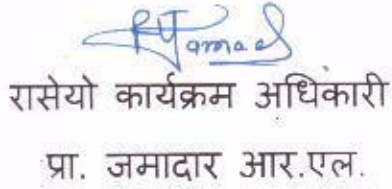 रासेयो कार्यक्रम अधिकारी
प्रा. जमादार आर.एल.